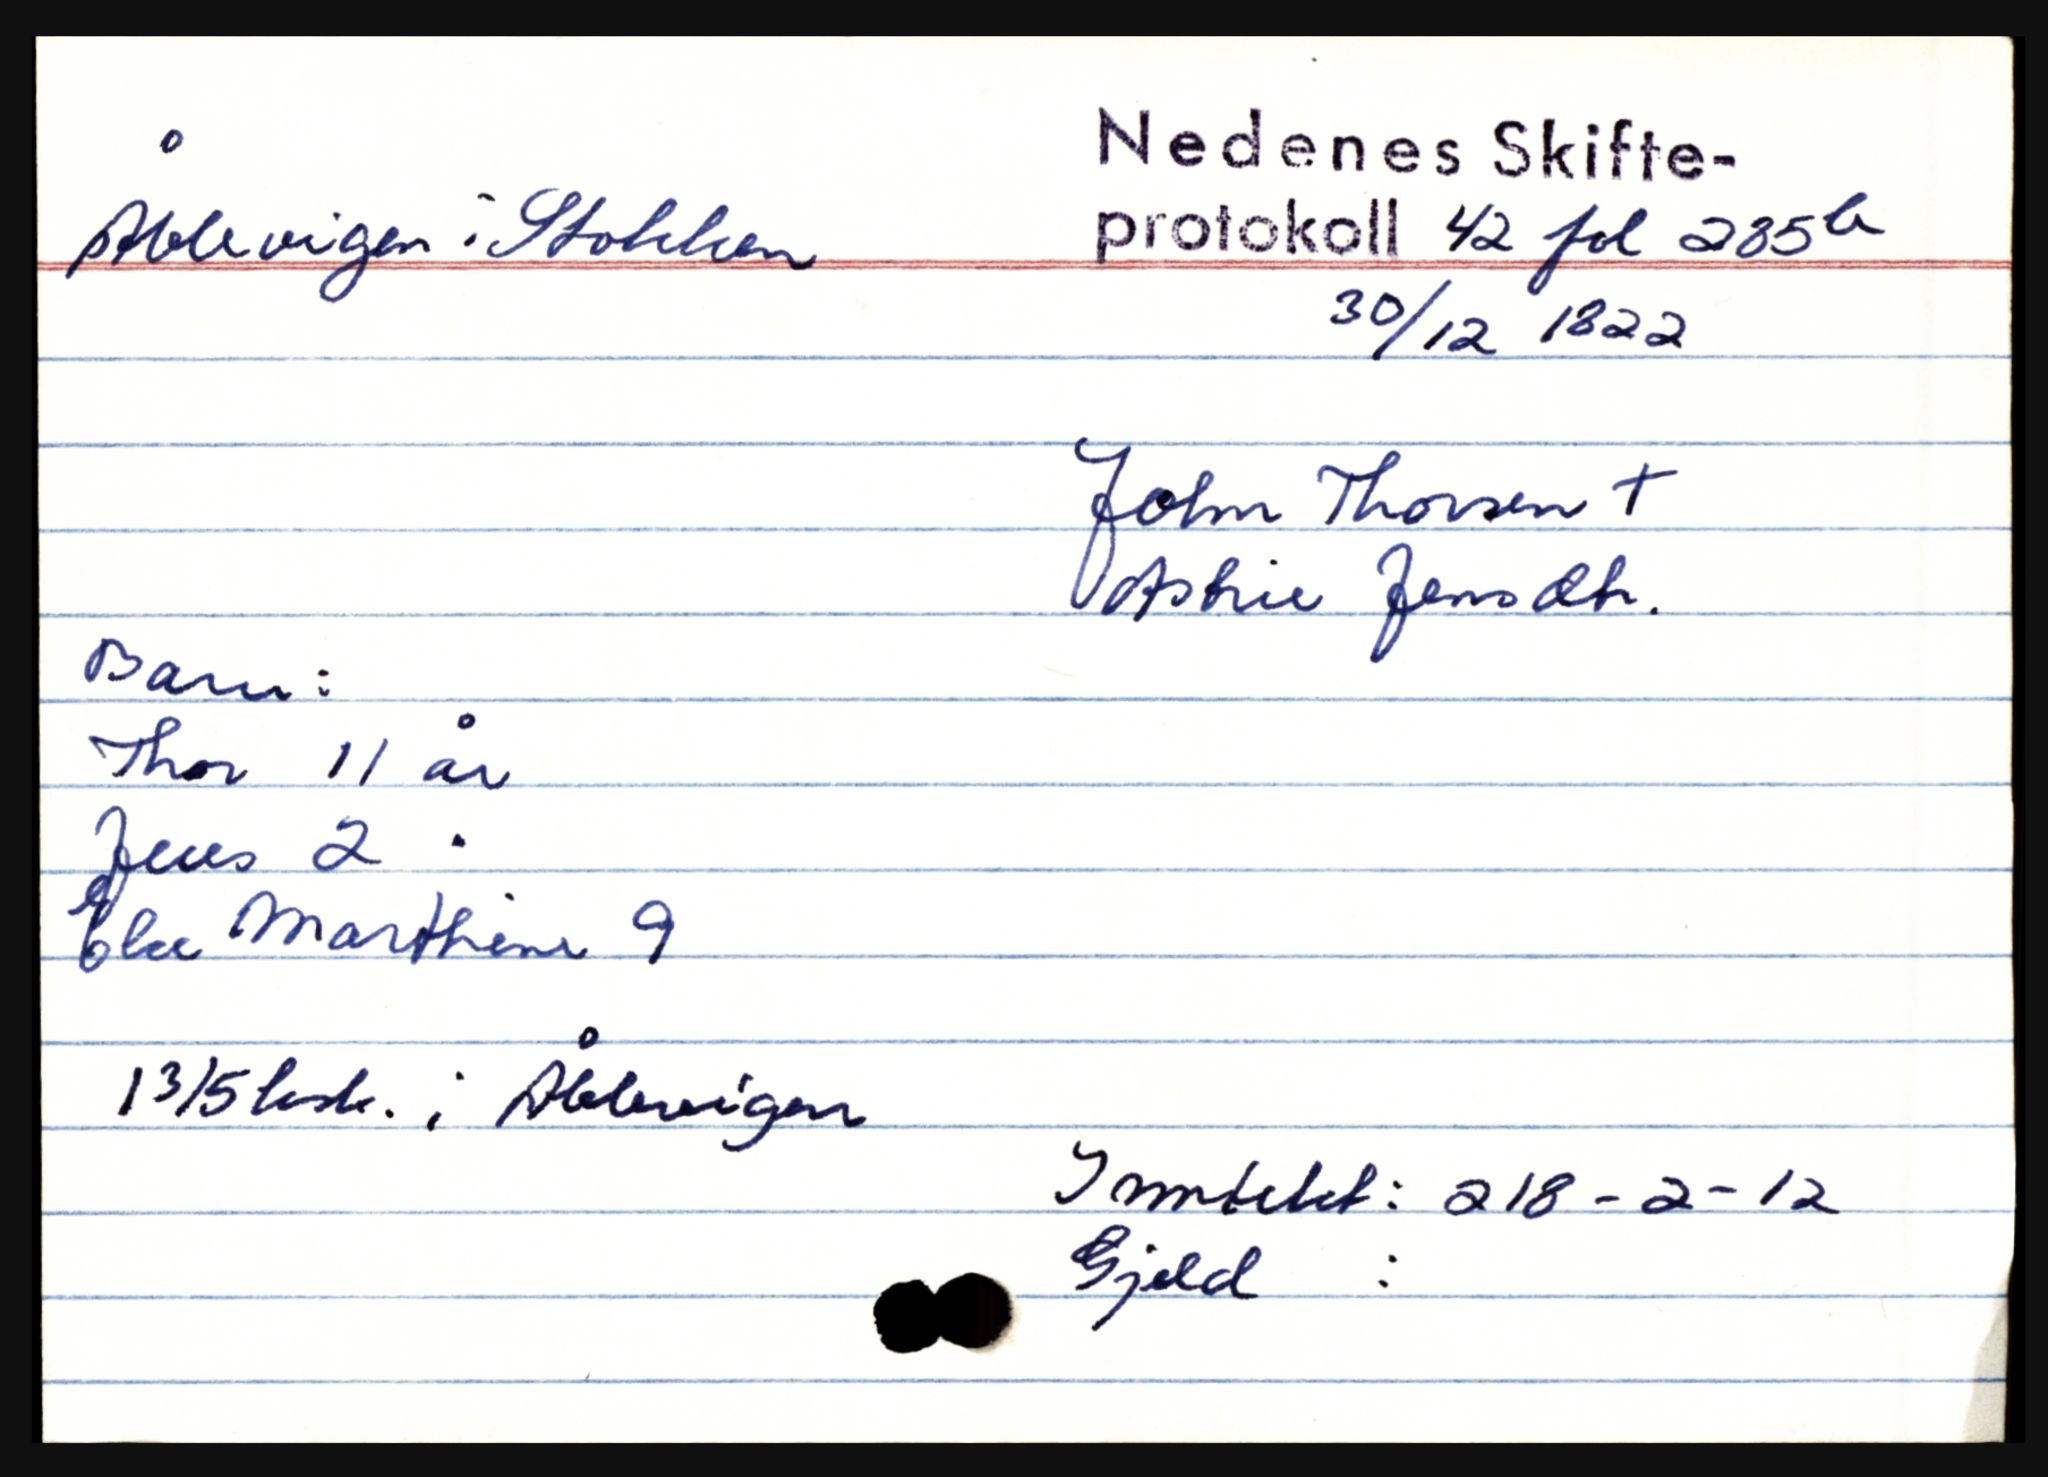 Åblevigen i Stokken
Nedenes Skifte-
protokoll 42 fol 285b
30/12 1822
John Thorsen +
Astrie Jensdtr.
Barn:
Thor 11 år
Jens 2 "
Else Marthine 9
13/5 i Åblevigen
Inntekt: 218-2-12
Gjeld :